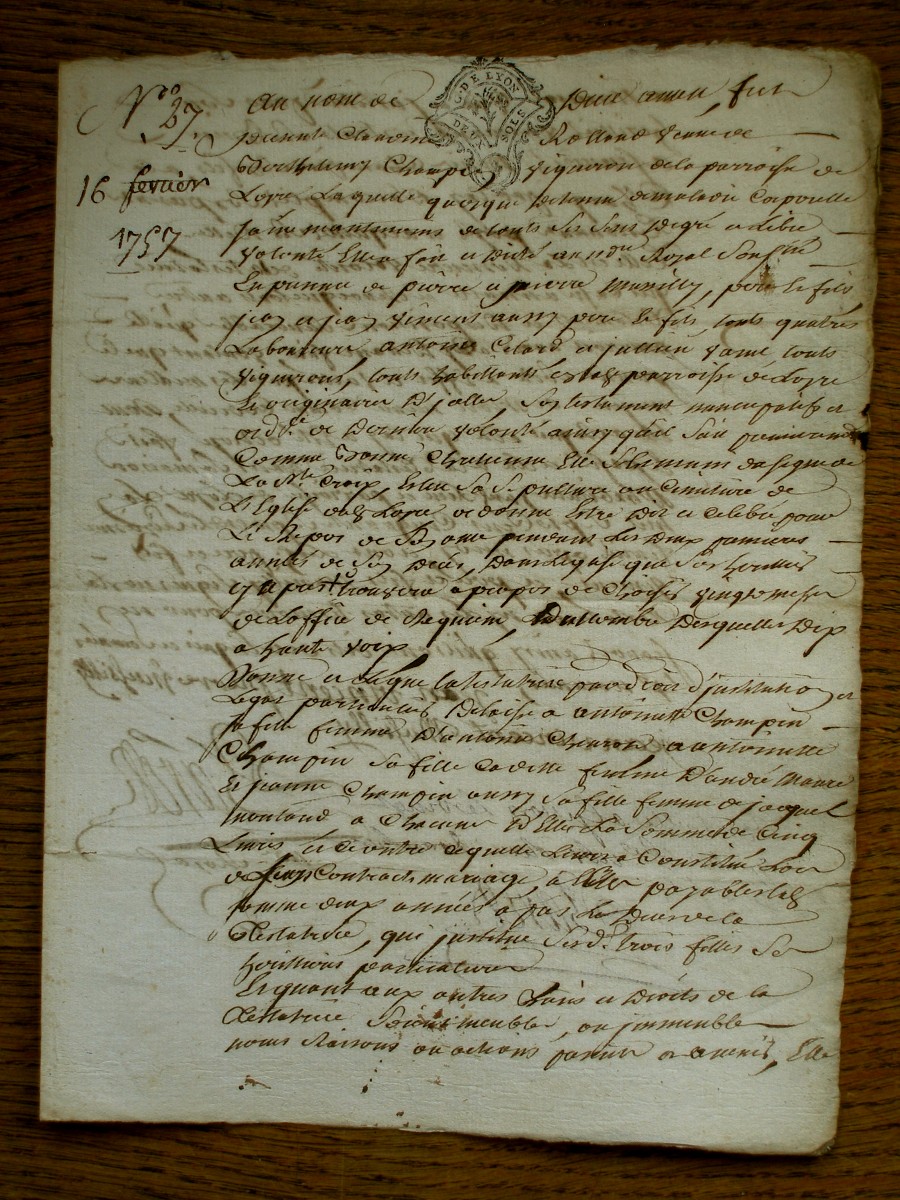 N° 27.
16 fevrier
1757
G. DE LYON
DEUX SOLS
Au nom de Dieu amen, fut
presente Claudine Rolland veuve de
Berthelemy Champin vigneron de la parroisse de
Loyre Laquelle quoyque detenue de maladie Corporelle
de touts ses sens de gré et libre
volonté Elle a fait et dicté au nore Royal
En presence de pierre et pierre pere et fils
jean et jean vincent aussy pere et fils, touts quatres
Laboureurs, antoine et jullien touts
vignerons, touts habittants de laditte parroisse de Loyre
Et originaires D' son testament nuncupatif et
ord.re de Derniere volonté ainsy qu'il suit
Comme bonne Chretienne Elle s'est munie du signe de
La Ste Croix, Eslit sa Sepulture au Cimitiere de
L'Eglise dud. Loyre et donne Estre dit et Celebré pour
Le Repos de son ame pendant Les deux premieres
années de son déces, dans l'eglise que ses heritiers
trouveront a propos de choisir vingt messes
de L'office de Requiem, Du nombre Desquelles Dix
a haute voix
Donne et Legue la testatrice par droit d'institution et
Legat particulier Delaissé a antoinette Champin
sa fille femme D'antoine a antoinette
Champin sa fille Cadette femme D'andré
Et jeanne Champin aussy sa fille femme de jacques
montand a Chacune D'Elles La Somme de Cinq
Livres et ce outre ce qu'elle Leur a Constitué Lors
de Leurs Contracts mariage, a Elles payables lad.
somme deux années apres Le Deces de la
Testatrice, qui institue Sesd. trois filles Ses
heritieres particulieres
Et quant aux autres biens et Droits de la
Testatrice Soient meubles, ou immeubles
noms Raisons ou actions presents et avenir, Elle